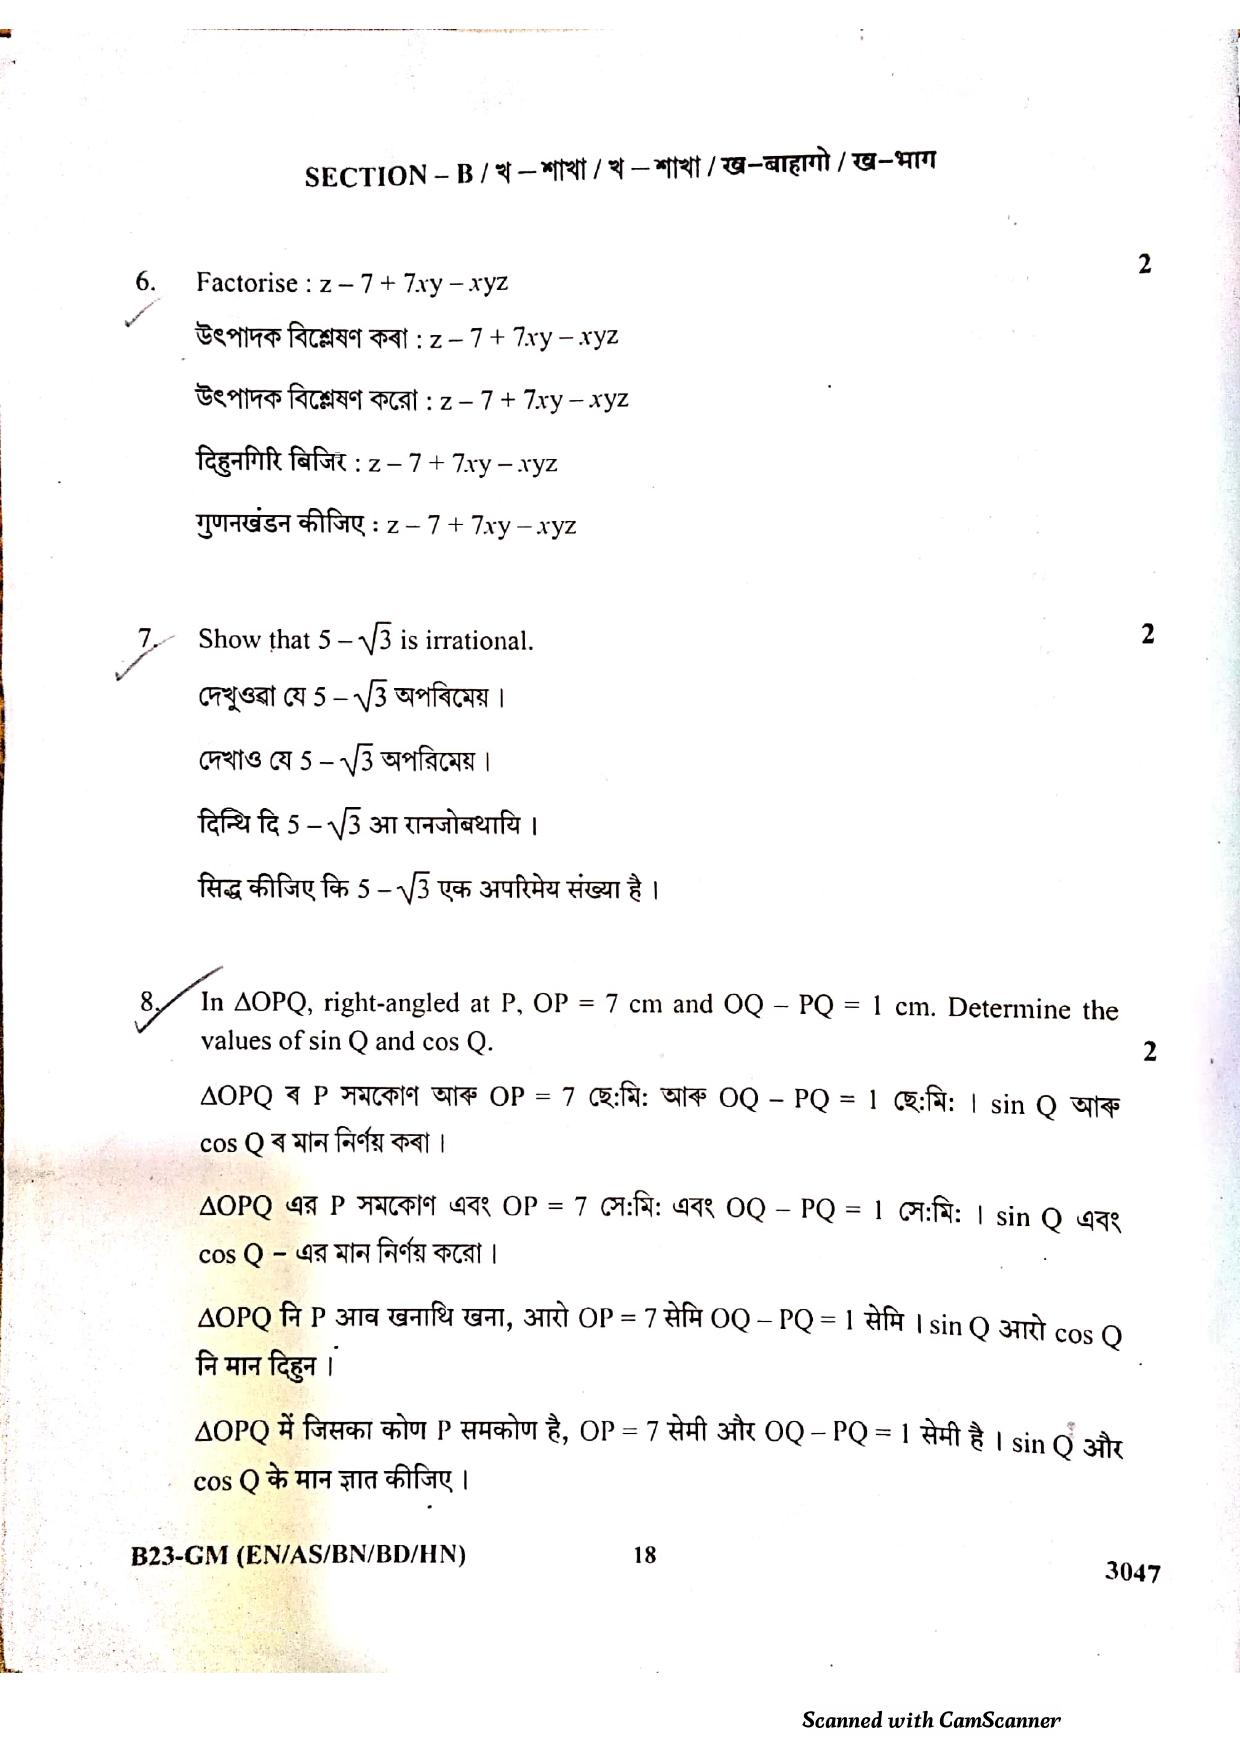 SECTION – B / খ – শাখা / খ – শাখা / ख–बाहागो / ख–भाग
2
6. Factorise : z – 7 + 7xy – xyz
উৎপাদক বিশ্লেষণ কৰা : z – 7 + 7xy – xyz
উৎপাদক বিশ্লেষণ করো : z – 7 + 7xy – xyz
दिहुनगिरि बिजिर : z – 7 + 7xy – xyz
गुणनखंडन कीजिए : z – 7 + 7xy – xyz
7. Show that 5 – √3 is irrational. 2
দেখুওৱা যে 5 – √3 অপৰিমেয় ।
দেখাও যে 5 – √3 অপরিমেয় ।
दिन्थि दि 5 – √3 आ रानजोबथायि ।
सिद्ध कीजिए कि 5 – √3 एक अपरिमेय संख्या है ।
8. In ΔOPQ, right-angled at P, OP = 7 cm and OQ – PQ = 1 cm. Determine the
values of sin Q and cos Q. 2
ΔOPQ ৰ P সমকোণ আৰু OP = 7 ছে:মি: আৰু OQ – PQ = 1 ছে:মি: । sin Q আৰু
cos Q ৰ মান নিৰ্ণয় কৰা ।
ΔOPQ এর P সমকোণ এবং OP = 7 সে:মি: এবং OQ – PQ = 1 সে:মি: । sin Q এবং
cos Q – এর মান নির্ণয় করো ।
ΔOPQ नि P आव खनाथि खना, आरो OP = 7 सेमि OQ – PQ = 1 सेमि । sin Q आरो cos Q
नि मान दिहुन ।
ΔOPQ में जिसका कोण P समकोण है, OP = 7 सेमी और OQ – PQ = 1 सेमी है । sin Q और
cos Q के मान ज्ञात कीजिए ।
B23-GM (EN/AS/BN/BD/HN) 18 3047
Scanned with CamScanner